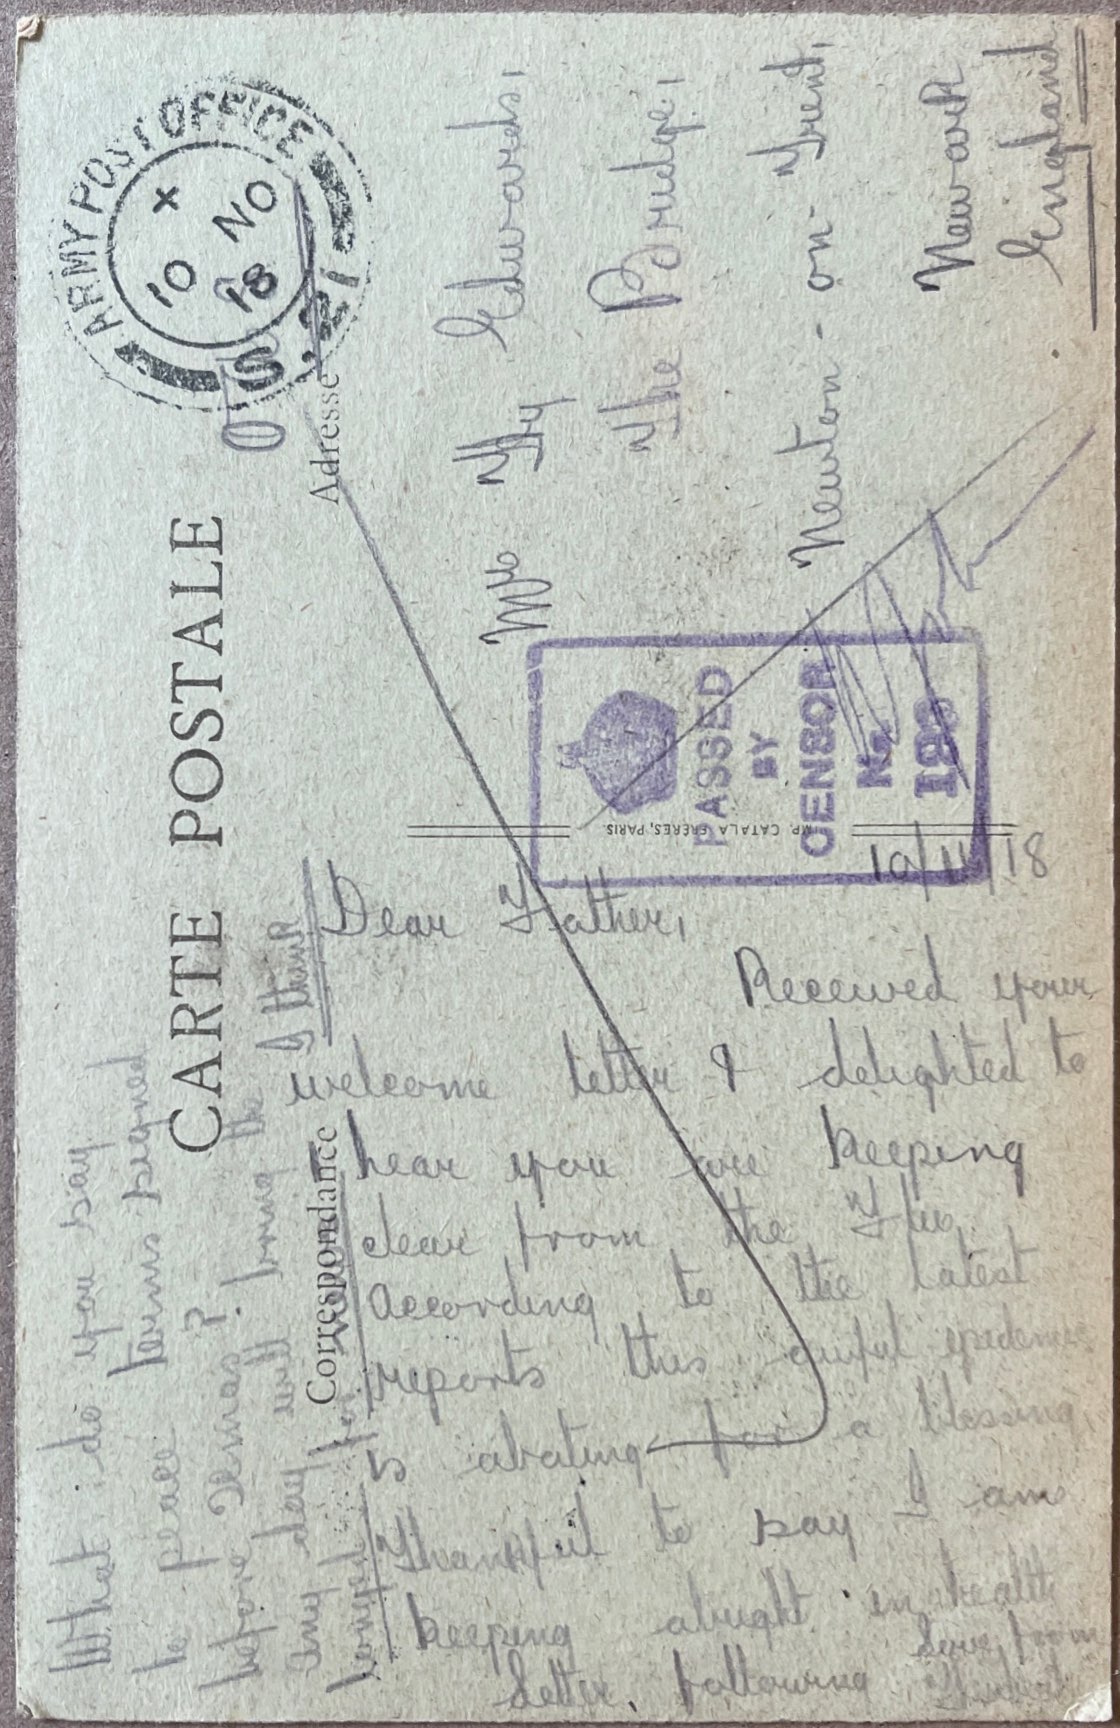 CARTE POSTALE
Correspondance
Adresse
ARMY POST OFFICE
X
10 NO
18
S.21
O
Mr Hy Edwards,
The Bridge,
Newton-on-Trent,
Newark
England
PASSED
BY
CENSOR
No.
IMP. CATALA FRÈRES, PARIS
10/11/18
Dear Father,
Received your
welcome letter & delighted to
hear you are keeping
clear from the Flu
According to the latest
reports this awful epidemic
is abating for a blessing,
Thankful to say I am
keeping alright in health
Letter following Love from
What do you say
to peace terms signed
before Xmas?
Any day will bring the
longed for I think